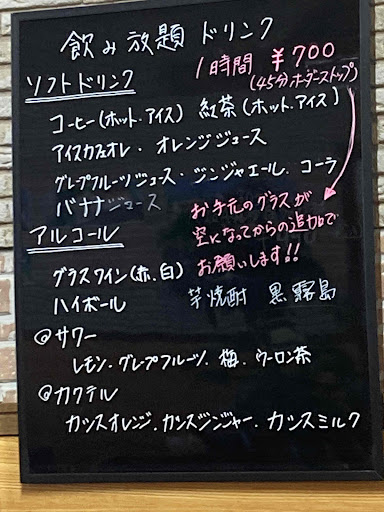 飲み放題 ドリンク
1時間 ¥700
(45分オーダーストップ)
ソフトドリンク
コーヒー(ホット・アイス) 紅茶(ホット・アイス)
アイスカフェオレ・オレンジジュース
グレープフルーツジュース・ジンジャエール・コーラ
バナナジュース
お手元のグラスが
空になってからの追加で
お願いします!!
アルコール
グラスワイン(赤、白)
ハイボール 芋焼酎 黒霧島
@サワー
レモン・グレープフルーツ、梅、ウーロン茶
@カクテル
カシスオレンジ、カシスジンジャー、カシスミルク